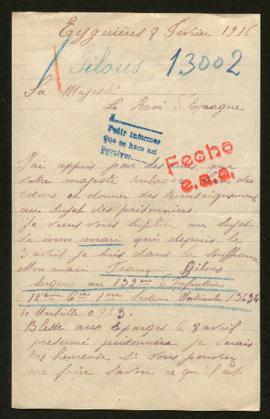 Eyguières 8 Février 1916
Gilous 13002
Sa Majesté
Le Roi d'Espagne
A
Pedir informes
que se hace así
Fecha
e.a.a.
J'ai appris par des que
votre majesté soulage des
cœurs et donner des renseignements
au sujet des prisonniers.
Je viens vous suplier au sujet
de mon mari qui depuis le
8 avril je suis dans la souffrance
Mon mari Gilous
au 132 d'Infanterie
12ème Cie 1ère Section Matricule 13624
Marseille
Blessé aux Eparges le 8 avril
présumé prisonnier je serais
très heureuse si vous pouviez
me faire savoir ce qu'il est